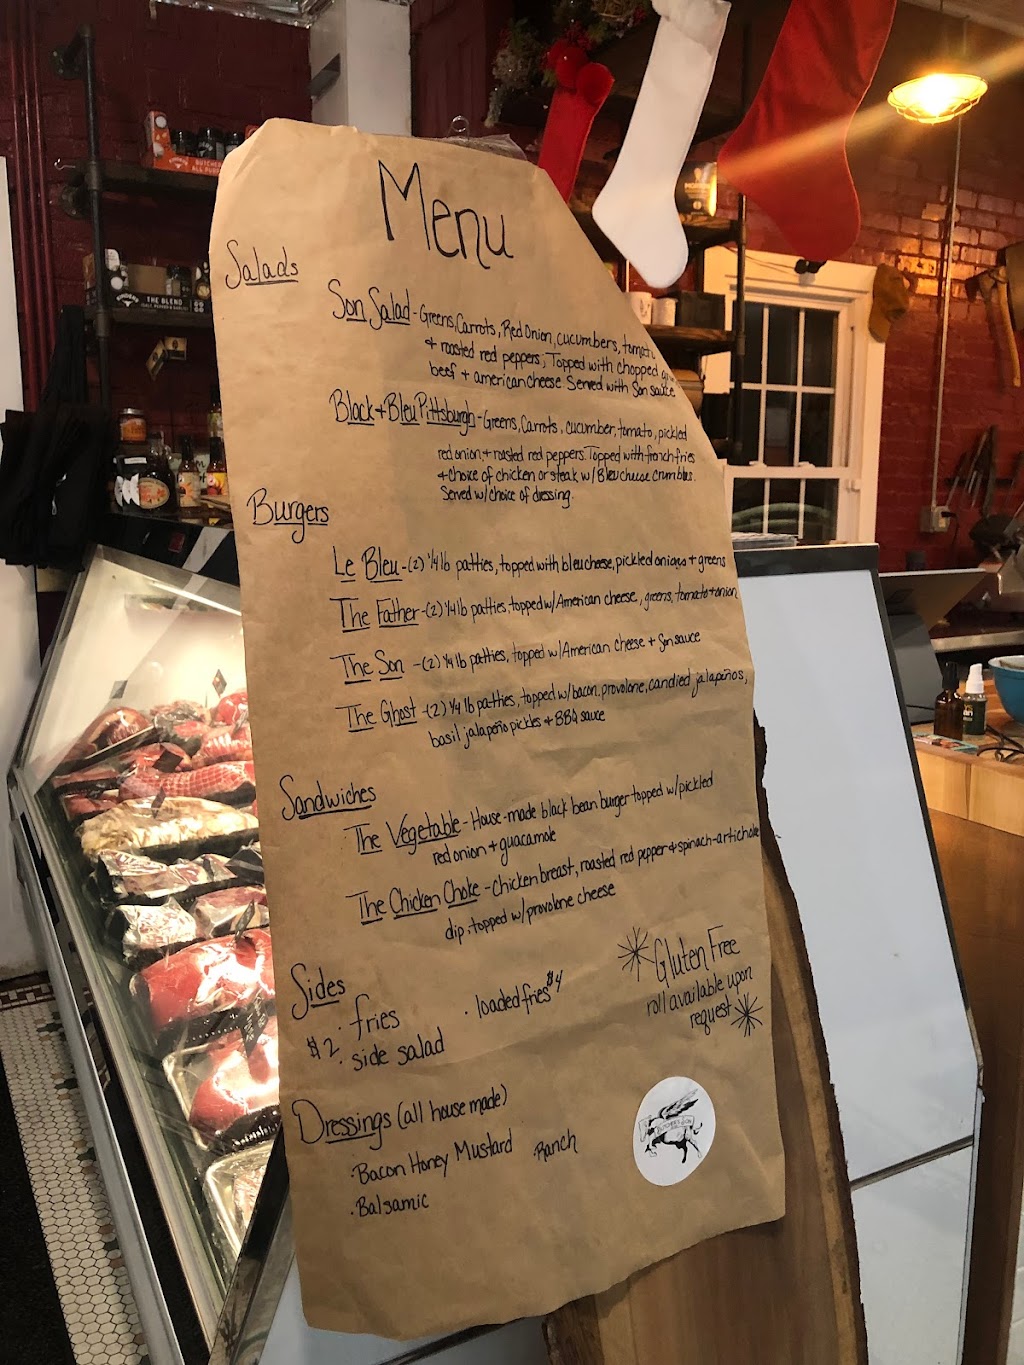 Menu
Salads
Son Salad - Greens, Carrots, Red Onion, cucumbers, tomato
+ roasted red peppers; Topped with chopped
beef + american cheese. Served with Son sauce
Black + Bleu Pittsburgh - Greens, Carrots, cucumber, tomato, pickled
red onion, + roasted red peppers. Topped with french fries
+ choice of chicken or steak w/ Bleu cheese crumbles.
Served w/ choice of dressing.
Burgers
Le Bleu - (2) 1/4 lb patties, topped with bleu cheese, pickled onions + greens
The Father - (2) 1/4 lb patties topped w/ American cheese, greens, tomato + onion
The Son - (2) 1/4 lb patties, topped w/ American cheese + Son sauce
The Ghost - (2) 1/4 lb patties, topped w/ bacon, provolone, candied jalapeños,
basil jalapeño pickles + BBQ sauce
Sandwiches
The Vegetable - House-made black bean burger topped w/ pickled
red onion + guacamole
The Chicken Choke - chicken breast, roasted red pepper + spinach-artichoke
dip, topped w/ provolone cheese
Sides
$2 · fries
· side salad
· loaded fries $4
Gluten Free
roll available upon
request
Dressings (all house made)
· Bacon Honey Mustard
Ranch
· Balsamic
BUTCHER'S SON
THE BLEND